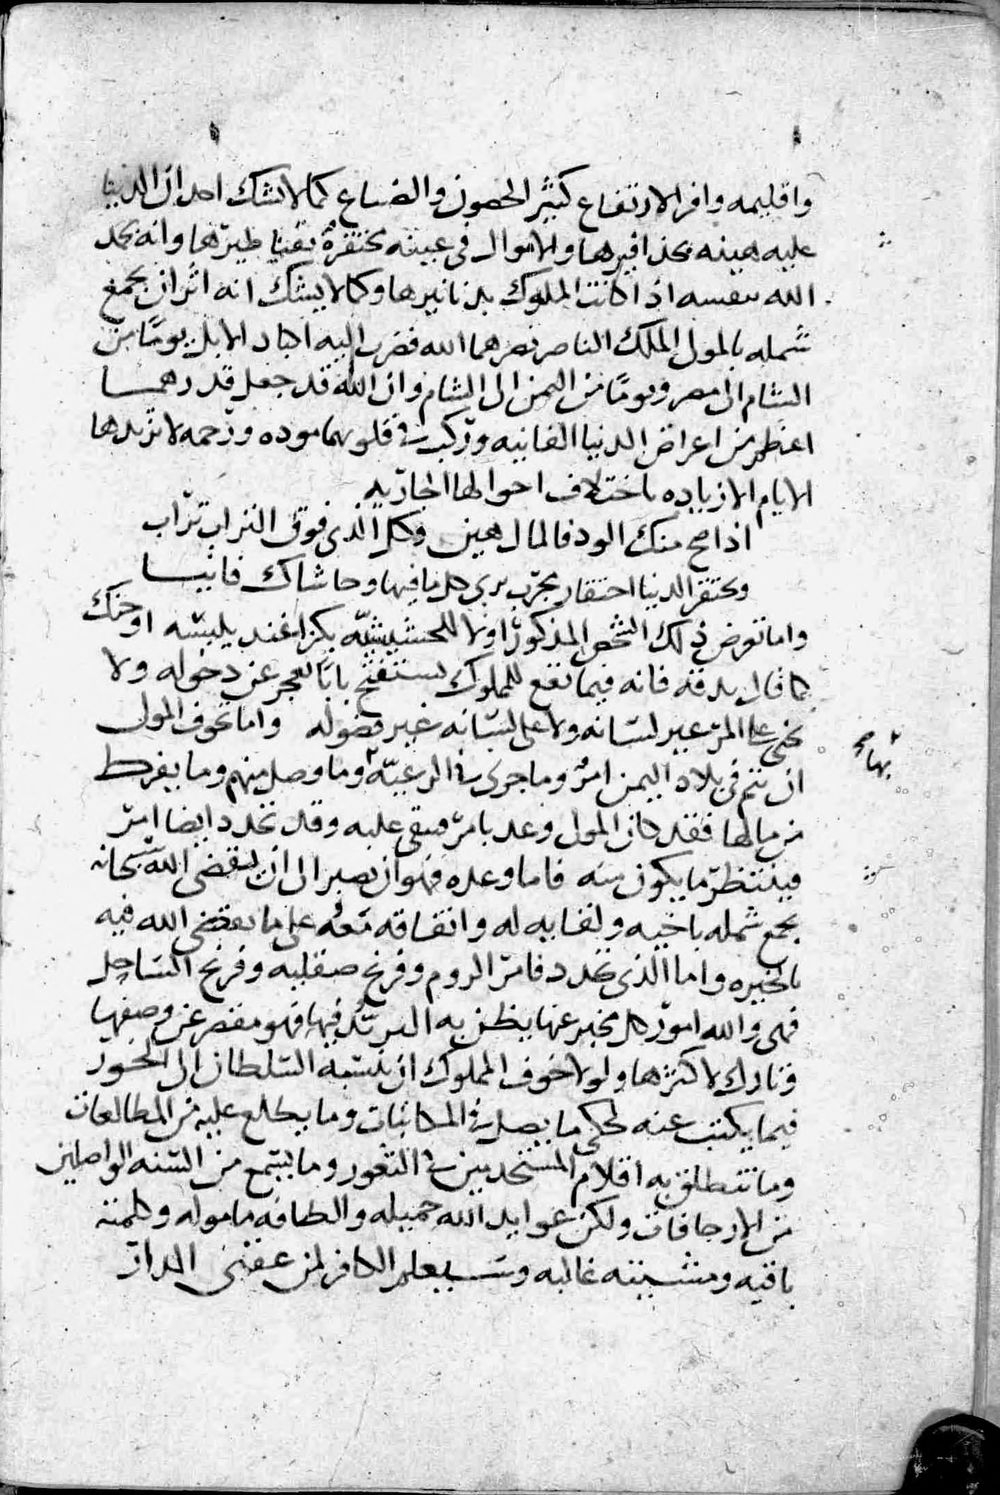 واقليمه وافر الارتفاع كثير الحصون والضياع كما لا يشك احد ان الدنيا
عليه هينه بحذافيرها والاموال في عينه محتقرة يقينا طيرها وانه يجد
الله بنفسه اذا كانت الملوك بدنانيرها وكما لا يشك انه اثر ان يجمع
شمله بالمولى الملك الناصر نصرهما الله فضرب اليه اكباد الابل يوما من
الشام الى مصر ويوما من اليمن الى الشام وان الله قد جعل قدرهما
اعظم من اعراض الدنيا الفانيه وركب في قلوبهما موده ورحمه لا تزيدها
الايام الا زياده باختلاف احوالها الجاريه
اذا صح منك الود فالمال هين وكل الذي فوق التراب تراب
وتحتقر الدنيا احتقار مجرب يرى كل ما فيها وحاشاك فانيا
واما تعرض ذلك الشخص المذكور اولا للحشيشيه بكزاغند يلبسه او حنك
كما قال يدقه فانه فيما تقع للمملوك يستفتح بابا يعجز عن دخوله ولا
يخنى على المرء غير لسانه ولا على لسانه غير فضوله واما تخوف المولى
بهما صح
ان يتم في بلاد اليمن امر وما جرى في الرعيه وما وصل منهم وما يفرط
من مالها فقد كان المولى وعد بامر وبقي عليه وقد تجدد ايضا امر
فينتظر ما يكون منه فاما وعده فهو ان يصير الى ان يقضي الله سبحانه
بجمع شمله باخيه ولقايه له واتفاقه معه على ما يقضي الله فيه
بالخيره واما الذي تجدد فامر الروم وفرنج صقليه وفرنج الساحل
فهي والله امور كل مخبر عنها يظن به التزيد فيها فهو مقصر عن وصفها
وتارك لاكثرها ولولا خوف المملوك ان ينسبه السلطان الى الخور
فيما يكتب عنه لحكى ما يصل في المكاتبات وما يطلع عليه من المطالعات
وما تنطلق به اقلام المستخدمين في الثغور وما يسمع من السنه الواصلين
من الارجافات ولكن عوايد الله جميله والطافه ماموله وكلمته
باقيه ومشيته غالبه وسيعلم الكافر لمن عقبى الدار